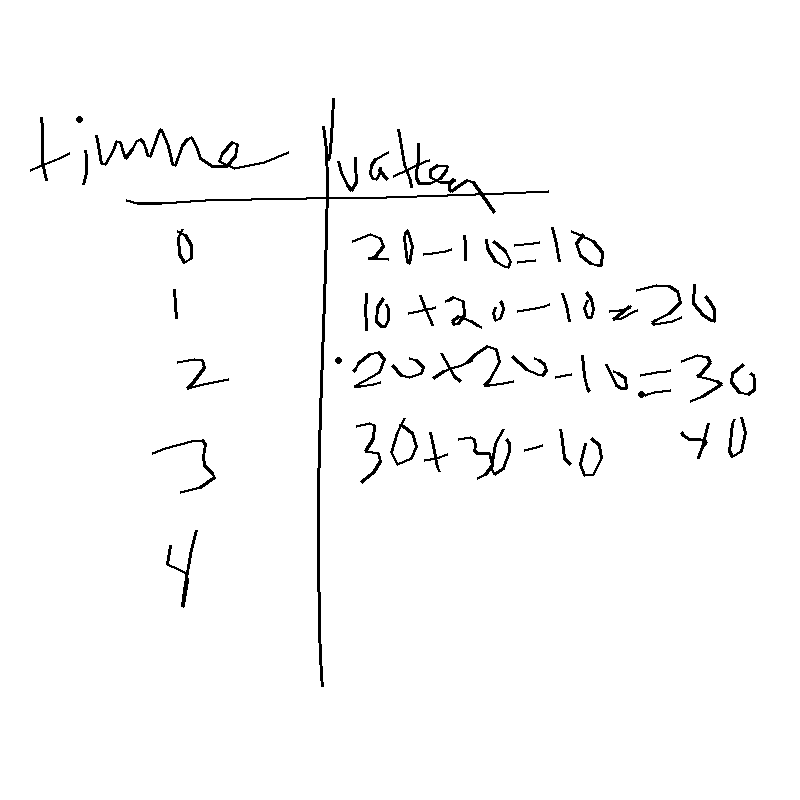 timme vatten
0 20-10=10
1 10+20-10=20
2 20+20-10=30
3 30+30-10 40
4